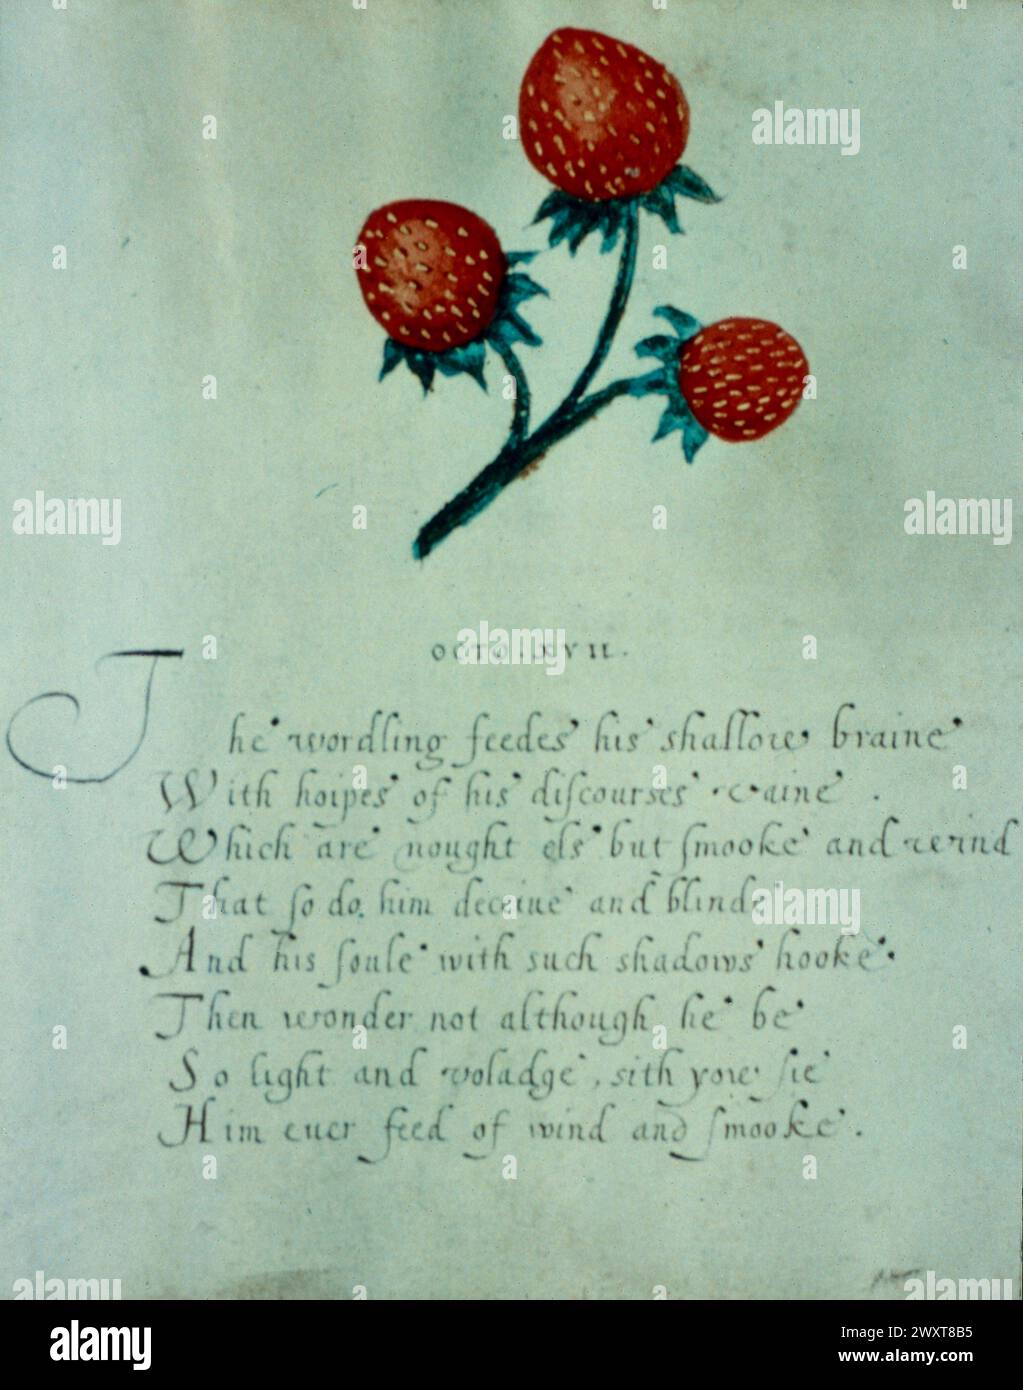 OCTO . XVII .
The wordling feedes his shallow braine
With hoipes of his diſcourses vaine .
Which are nought els but ſmooke and wind
That ſo do him deceiue and blind
And his ſoule with such shadows hooke .
Then wonder not although he be
So light and voladge , sith yow ſie
Him euer feed of wind and ſmooke .
alamy
Image ID: 2WXT8B5
www.alamy.com